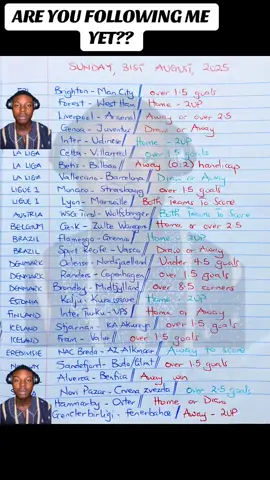 ARE YOU FOLLOWING ME
YET??
SUNDAY, 31ST AUGUST, 2025
Brighton - Man City / over 1.5 goals
Forest - West Ham / Home - 2UP
Liverpool - Arsenal / Away or over 2.5
Genoa - Juventus / Draw or Away
Inter - Udinese / Home - 2UP
LA LIGA Celta - Villarreal / over 1.5 goals
LA LIGA Betis - Bilbao / Away (0:2) handicap
LA LIGA Vallecano - Barcelona / Draw or Away
LIGUE 1 Monaco - Strasbourg / over 1.5 goals
LIGUE 1 Lyon - Marseille / Both Teams to Score
AUSTRIA WSG Tirol - Wolfsberger / Both teams to Score
BELGIUM Genk - Zulte Waregem / Home or over 2.5
BRAZIL Flamengo - Gremio / Home - 2UP
BRAZIL Sport Recife - Vasco / Draw or Away
DENMARK Odense - Nordsjaelland / Under 4.5 goals
DENMARK Randers - Copenhagen / over 1.5 goals
DENMARK Brondby - Midtjylland / over 8.5 corners
ESTONIA Kalju - Kuressaare / Home - 2UP
FINLAND Inter Turku - VPS / Home or Away
ICELAND Stjarnan - KA Akureyri / over 1.5 goals
ICELAND Fram - Valur / over 1.5 goals
EREDIVISIE NAC Breda - AZ Alkmaar / Away to score
Sandefjord - Bodo/Glimt / over 1.5 goals
Alverca - Benfica / Away win
Novi Pazar - Crvena zvezda / over 2.5 goals
Hammarby - Oster / Home or Draw
Genclerbirligi - Fenerbahce / Away - 2UP